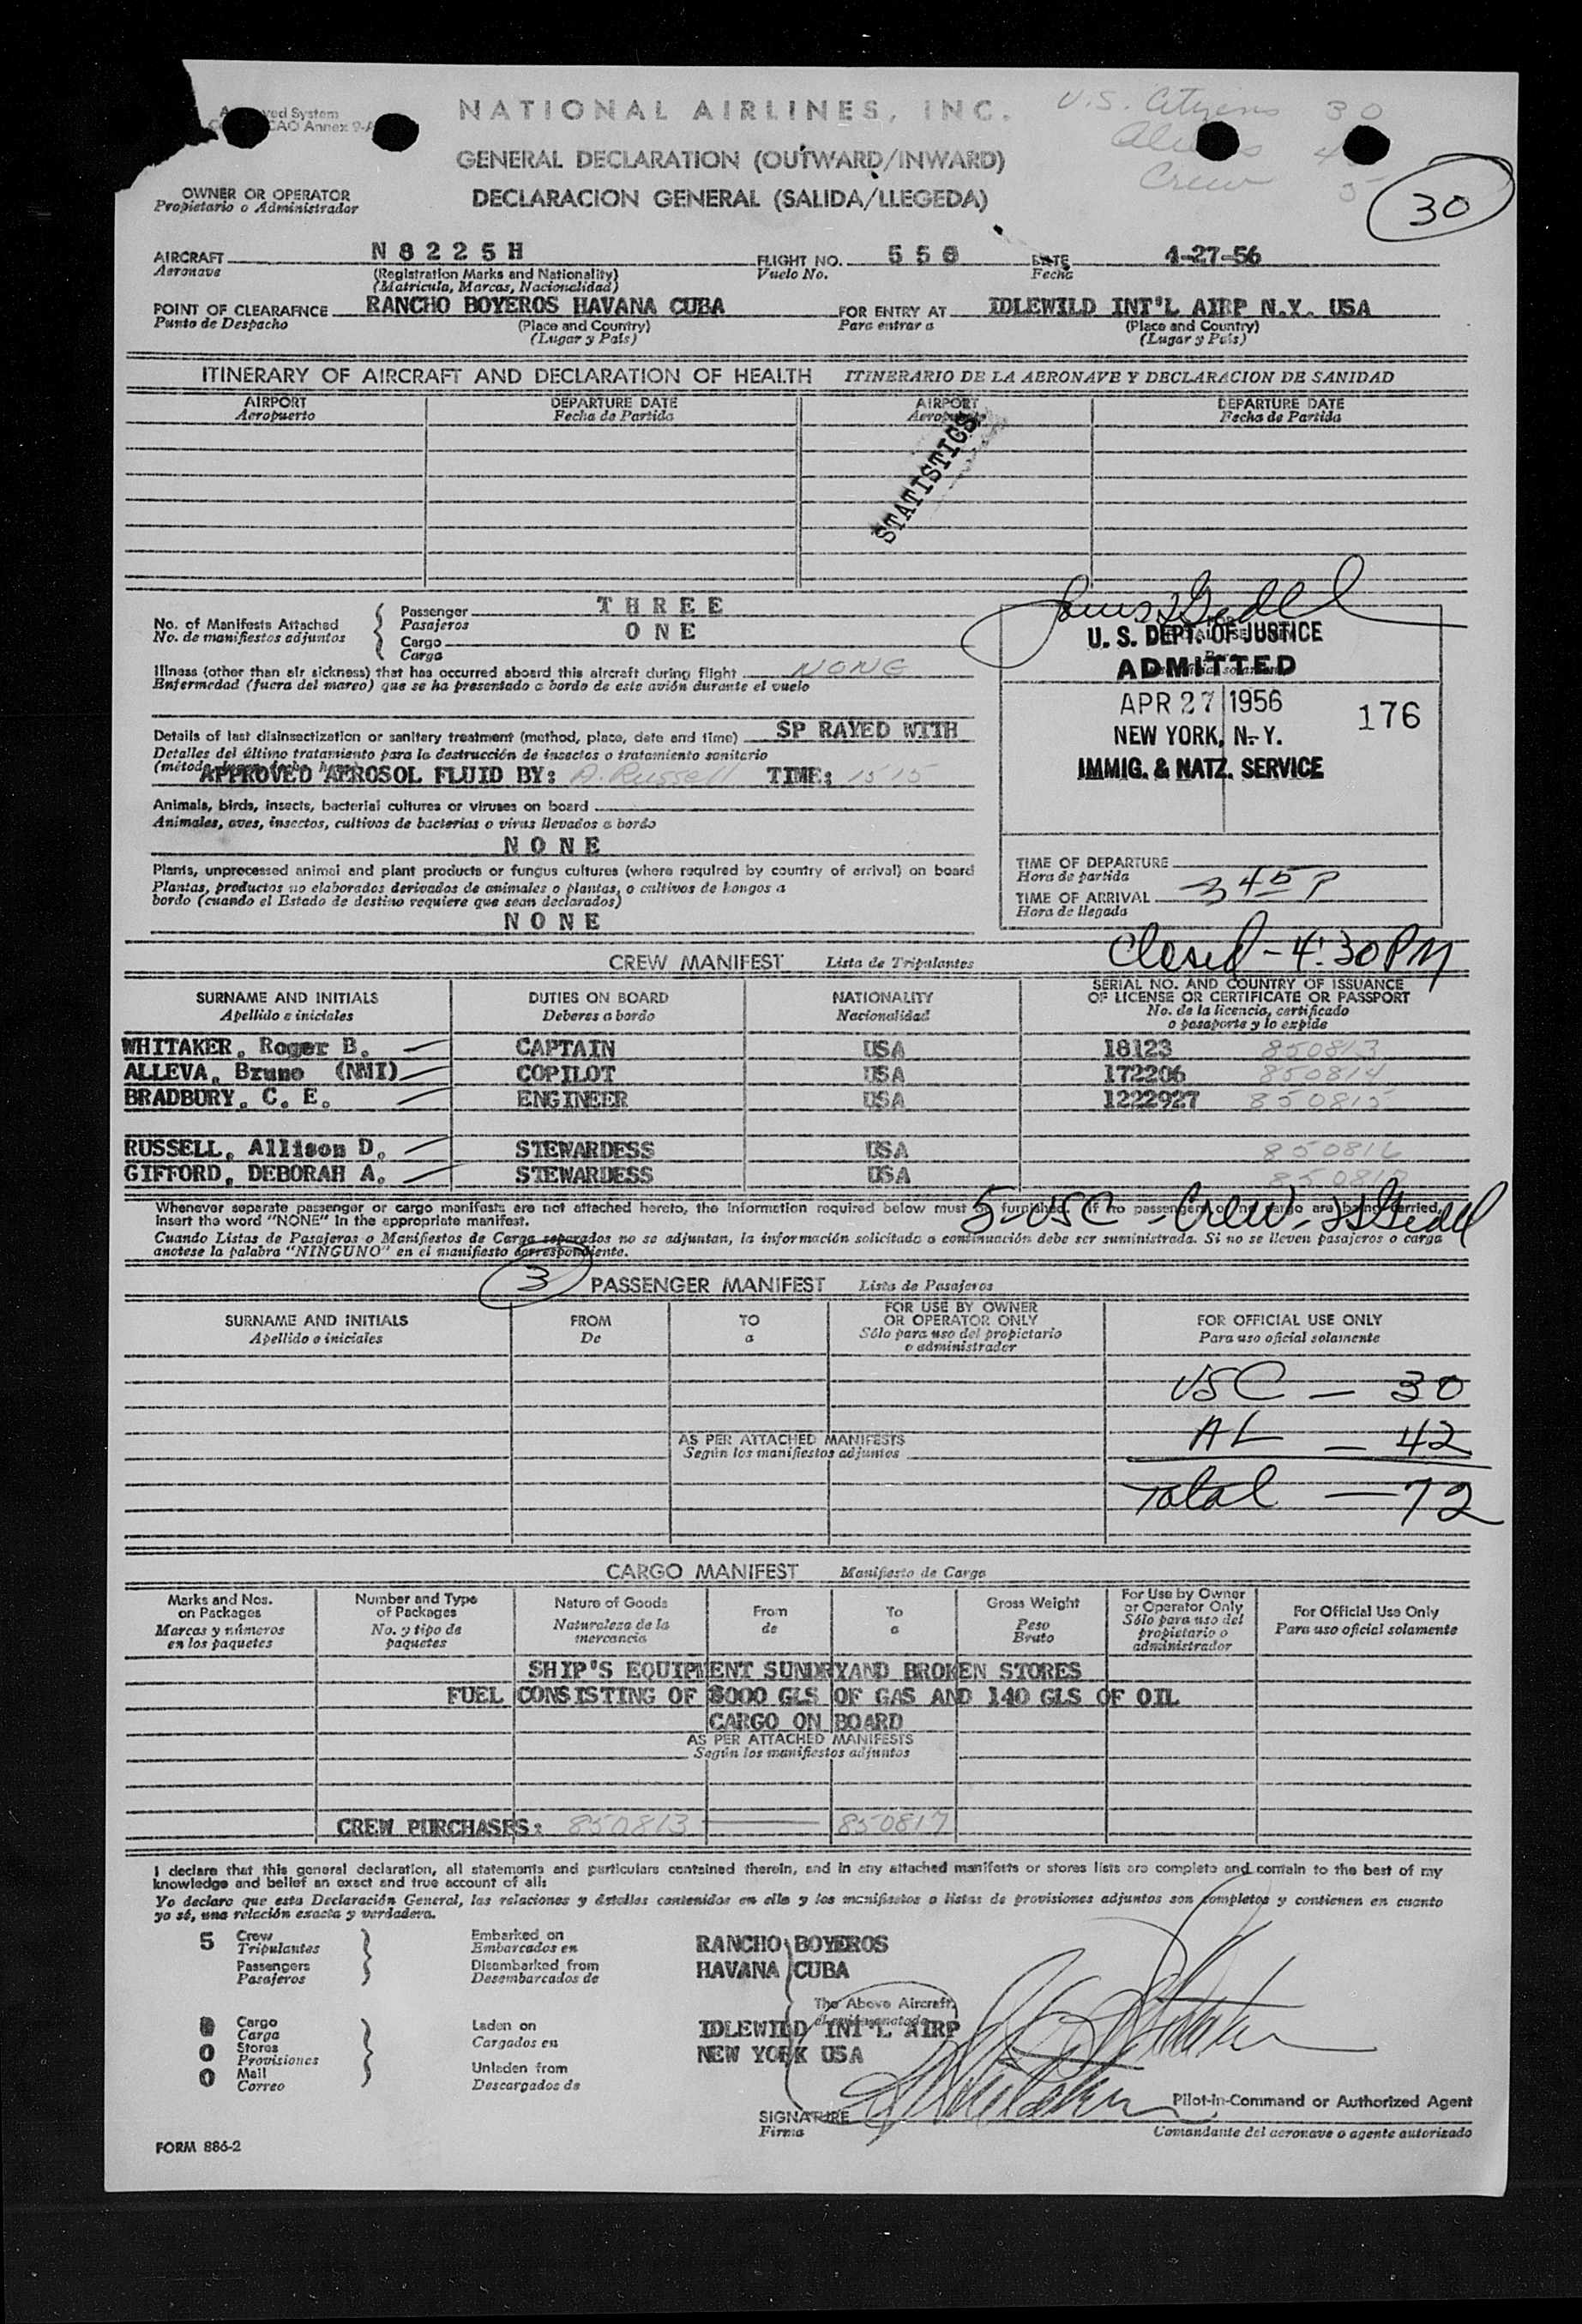 NATIONAL AIRLINES, INC.
U.S. Citizens 30
Crew 5
30
GENERAL DECLARATION (OUTWARD/INWARD)
DECLARACION GENERAL (SALIDA/LLEGEDA)
OWNER OR OPERATOR
Propietario o Administrador
AIRCRAFT N 8 2 2 5 H FLIGHT NO. 5 5 8 DATE 4-27-56
Aeronave (Registration Marks and Nationality) Vuelo No. Fecha
(Matricula, Marcas, Nacionalidad)
POINT OF CLEARAFNCE RANCHO BOYEROS HAVANA CUBA FOR ENTRY AT IDLEWILD INT'L AIRP N.Y. USA
Punto de Despacho (Place and Country) Para entrar a (Place and Country)
(Lugar y País) (Lugar y País)
ITINERARY OF AIRCRAFT AND DECLARATION OF HEALTH ITINERARIO DE LA AERONAVE Y DECLARACION DE SANIDAD
AIRPORT DEPARTURE DATE AIRPORT DEPARTURE DATE
Aeropuerto Fecha de Partida Aeropuerto Fecha de Partida
STATISTICS
No. of Manifests Attached Passenger T H R E E
No. de manifiestos adjuntos Pasajeros
Cargo O N E
Carga
Illness (other than air sickness) that has occurred aboard this aircraft during flight NONE
Enfermedad (fuera del mareo) que se ha presentado a bordo de este avión durante el vuelo
Details of last disinsectization or sanitary treatment (method, place, date and time) SP RAYED WITH
Detalles del último tratamiento para la destrucción de insectos o tratamiento sanitario
APPROVED AEROSOL FLUID BY: A. Russell TIME: 1515
Animals, birds, insects, bacterial cultures or viruses on board
Animales, aves, insectos, cultivos de bacterias o virus llevados a bordo
N O N E
Plants, unprocessed animal and plant products or fungus cultures (where required by country of arrival) on board
Plantas, productos no elaborados derivados de animales o plantas, o cultivos de hongos a
bordo (cuando el Estado de destino requiere que sean declarados)
N O N E
U. S. DEPT. OF JUSTICE
ADMITTED
APR 27 1956 176
NEW YORK, N. Y.
IMMIG. & NATZ. SERVICE
TIME OF DEPARTURE
Hora de partida
TIME OF ARRIVAL 345 P
Hora de llegada
Closed - 4:30 PM
CREW MANIFEST Lista de Tripulantes
SURNAME AND INITIALS DUTIES ON BOARD NATIONALITY SERIAL NO. AND COUNTRY OF ISSUANCE
OF LICENSE OR CERTIFICATE OR PASSPORT
Apellido e iniciales Deberes a bordo Nacionalidad No. de la licencia, certificado
o pasaporte y lo expide
WHITAKER, Roger B. CAPTAIN USA 18123 850813
ALLEVA, Bruno (NMI) COPILOT USA 172206 850814
BRADBURY, C. E. ENGINEER USA 1222927 850815
RUSSELL, Allison D. STEWARDESS USA 850816
GIFFORD, DEBORAH A. STEWARDESS USA 850817
Whenever separate passenger or cargo manifests are not attached hereto, the information required below must be furnished. If no passengers or no cargo are being carried,
insert the word "NONE" in the appropriate manifest.
5-USC-Crew
Cuando Listas de Pasajeros o Manifiestos de Carga separados no se adjuntan, la información solicitada a continuación debe ser suministrada. Si no se lleven pasajeros o carga
anotese la palabra "NINGUNO" en el manifiesto correspondiente.
3 PASSENGER MANIFEST Lista de Pasajeros
SURNAME AND INITIALS FROM TO FOR USE BY OWNER FOR OFFICIAL USE ONLY
OR OPERATOR ONLY
Apellido e iniciales De a Sólo para uso del propietario Para uso oficial solamente
o administrador
USC — 30
AL — 42
Total — 72
AS PER ATTACHED MANIFESTS
Según los manifiestos adjuntos
CARGO MANIFEST Manifiesto de Carga
Marks and Nos. on Packages Number and Type of Packages Nature of Goods From To Gross Weight For Use by Owner or Operator Only For Official Use Only
Marcas y números en los paquetes No. y tipo de paquetes Naturaleza de la mercancia de a Peso Bruto Sólo para uso del propietario o administrador Para uso oficial solamente
SHIP'S EQUIPMENT SUNDRYAND BROKEN STORES
FUEL CONSISTING OF 8000 GLS OF GAS AND 140 GLS OF OIL
CARGO ON BOARD
AS PER ATTACHED MANIFESTS
Según los manifiestos adjuntos
CREW PURCHASES: 850813 — 850817
I declare that this general declaration, all statements and particulars contained therein, and in any attached manifests or stores lists are complete and contain to the best of my
knowledge and belief an exact and true account of all:
Yo declaro que esta Declaración General, las relaciones y detalles contenidos en ella y los manifiestos o listas de provisiones adjuntos son completos y contienen en cuanto
yo sé, una relación exacta y verdadera.
5 Crew Embarked on RANCHO BOYEROS
Tripulantes Embarcados en
Passengers Disembarked from HAVANA CUBA
Pasajeros Desembarcados de
The Above Aircraft
Cargo Laden on IDLEWILD INT'L AIRP
Carga Cargados en
0 Stores NEW YORK USA
Provisiones
0 Mail Unladen from
Correo Descargados de
Pilot-in-Command or Authorized Agent
SIGNATURE
Firma Comandante del aeronave o agente autorizado
FORM 886-2